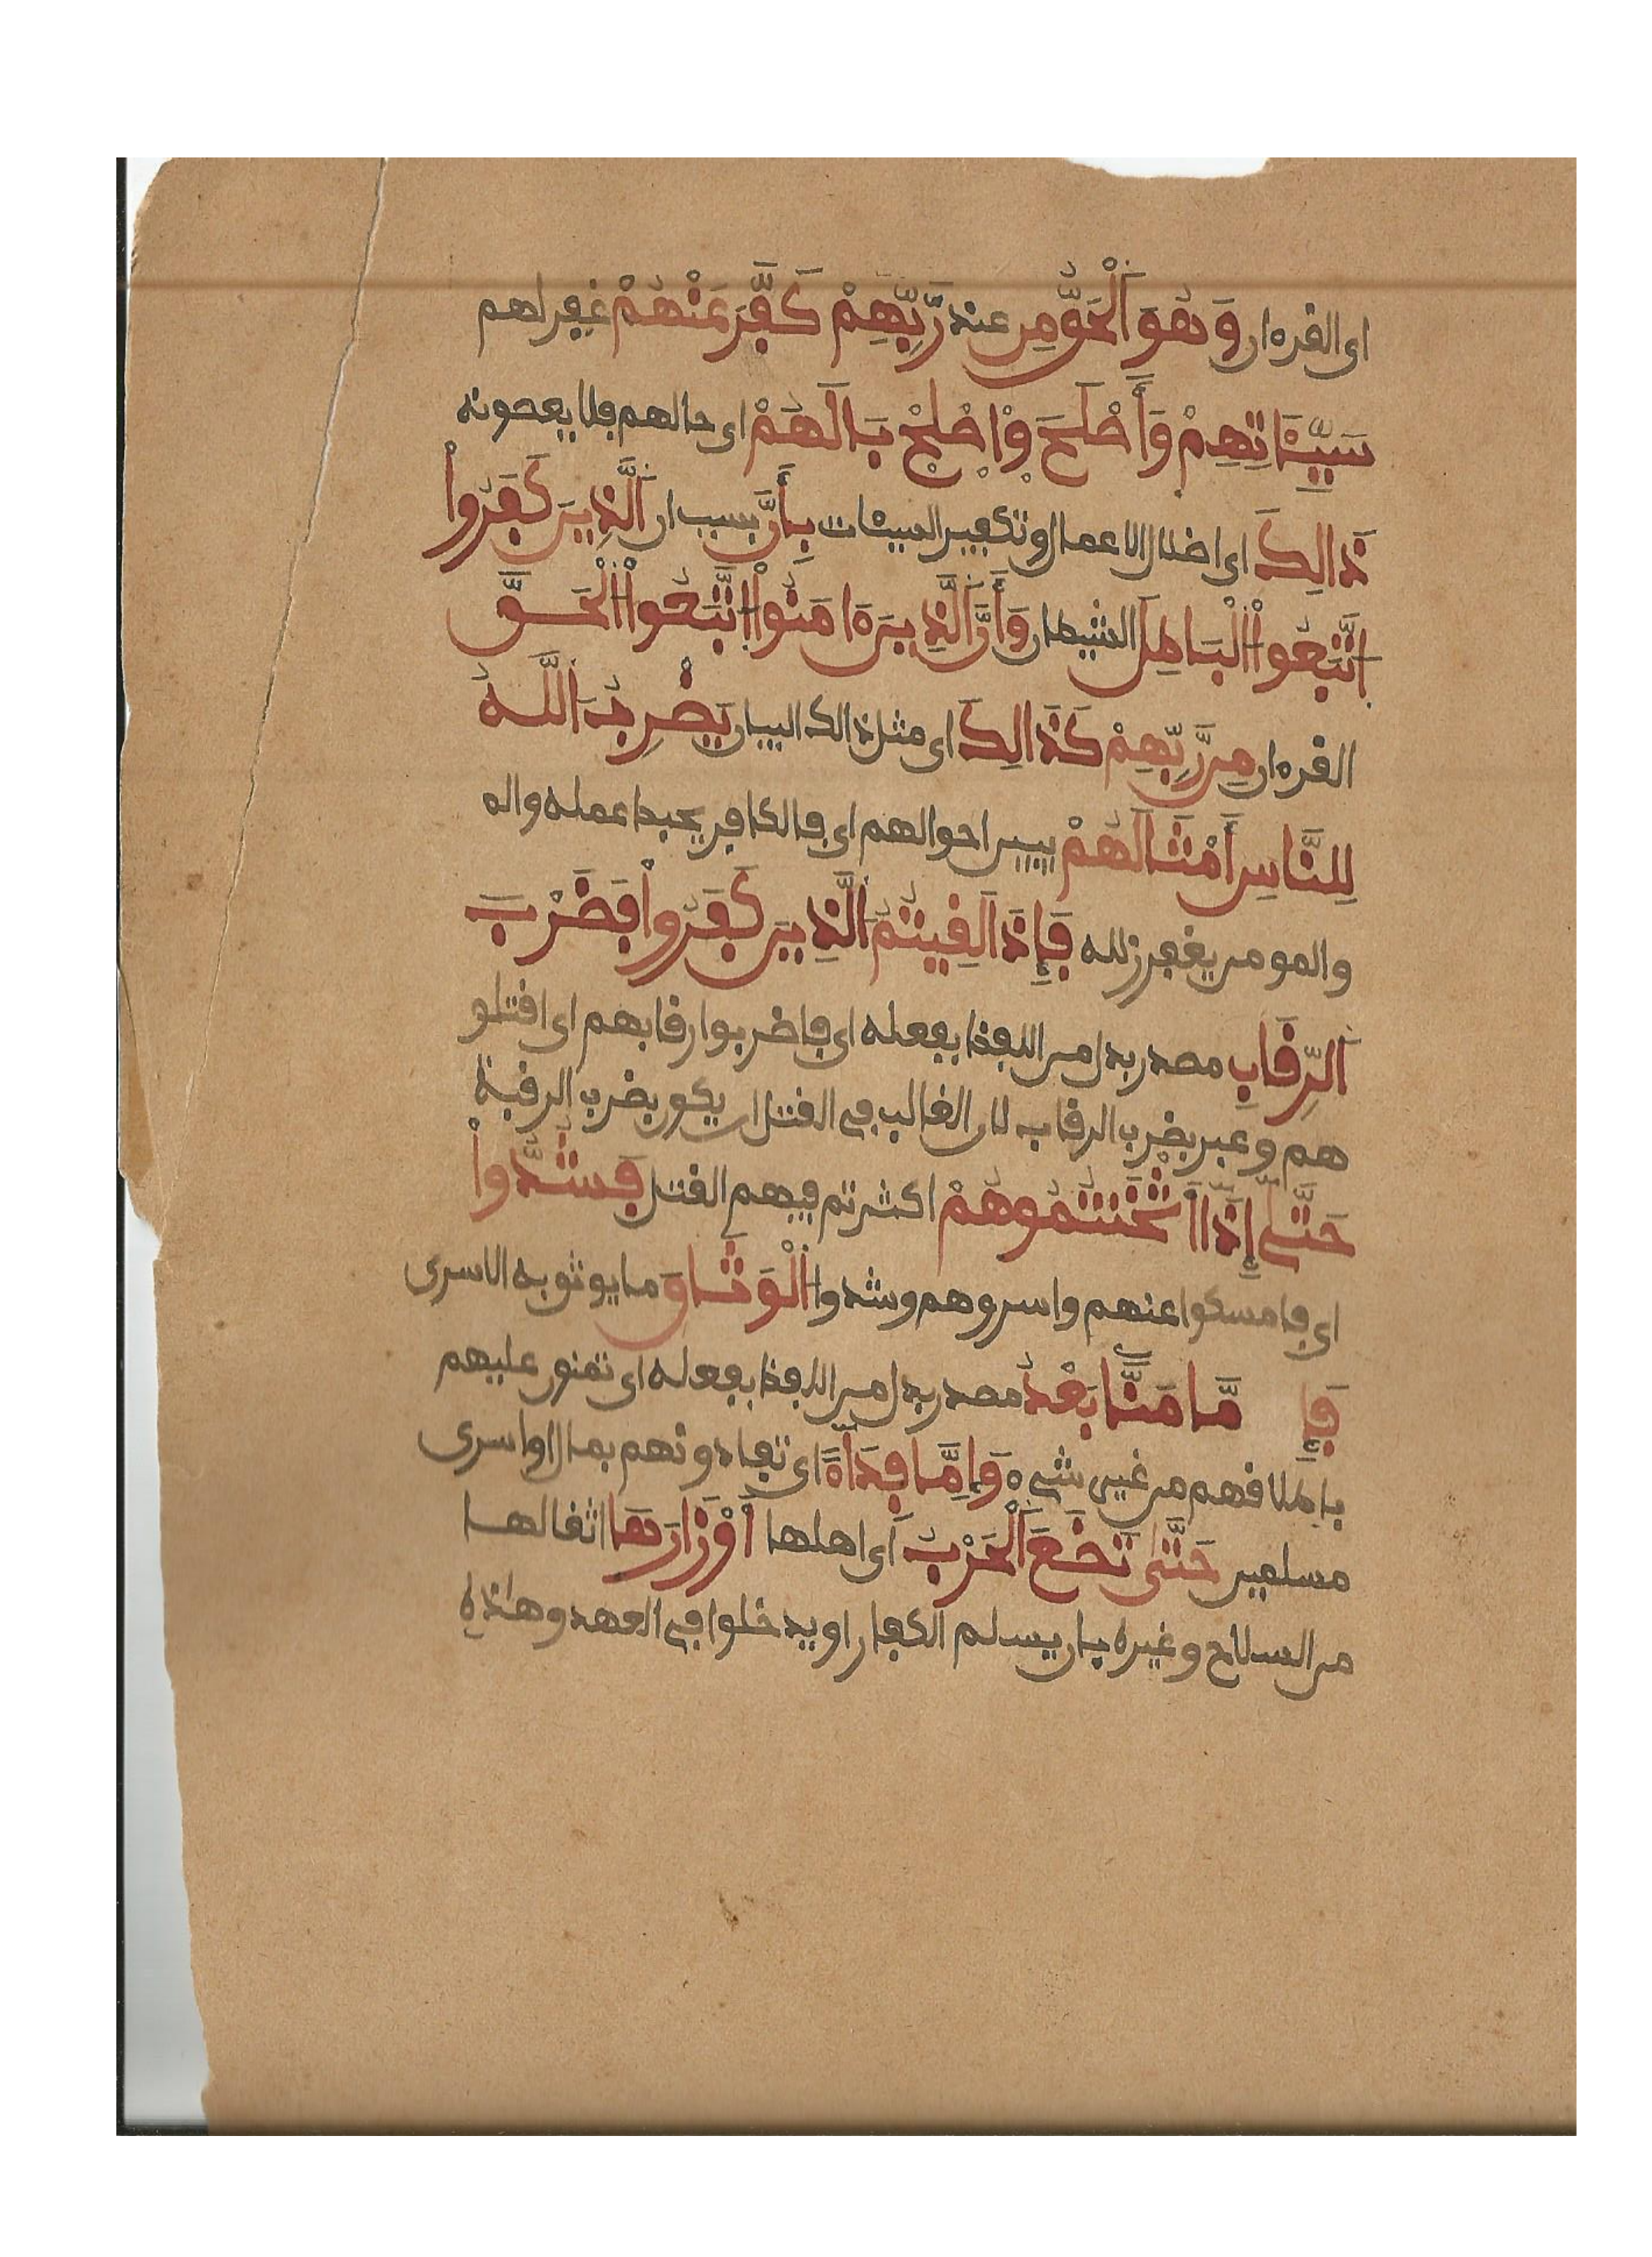 اى القرءان وَهُوَ اَلْحَقُّ مِن عند رَّبِّهِمْ كَفَّرَ عَنْهُمْ غفر لهم
سَيِّـَٔاتِهِمْ وَأَصْلَحَ وَاصْلِحْ بَالَهُمْ اى حالهم فلا يعصونه
ذَالِكَ اى اضلال الاعمال وتكفير السيئات بِأَنَّ بسبب ان اَلَّذِينَ كَفَرُواْ
اتَّبَعُواْ الْبَاطِلَ الشيطان وَأَنَّ اَلَّذِينَ ءَامَنُواْ اتَّبَعُواْ الْحَقَّ
القرءان مِن رَّبِّهِمْ كَذَالِكَ اى مثل ذالك البيان يَضْرِبُ اَللَّهُ
لِلنَّاسِ أَمْثَالَهُمْ يبين احوالهم اى فالكافر يحبط عمله واله
والمومن يغفر زلله فَإِذَا لَقِيتُمُ اَلَّذِينَ كَفَرُواْ فَضَرْبَ
اَلرِّقَابِ مصدر بدل من اللفظ بفعله اى فاضربوا رقابهم اى اقتلو
هم وعبر بضرب الرقاب لان الغالب في القتل ان يكون بضرب الرقبة
حَتَّى إِذَا أَثْخَنتُمُوهُمْ اكثرتم فيهم القتل فَشُدُّواْ
اى فامسكوا عنهم واسروهم وشدوا اَلْوَثَاقَ ما يوثق به الاسرى
فَإِ مَّا مَنَّا بَعْدُ مصدر بدل من اللفظ بفعله اى تمنون عليهم
باطلاقهم من غير شيء وَإِمَّا فِدَآءً اى تفادونهم بمال او اسرى
مسلمين حَتَّى تَضَعَ اَلْحَرْبُ اى اهلها أَوْزَارَهَا اثقالها
من السلاح وغيره بان يسلم الكفار او يدخلوا في العهد وهاذه